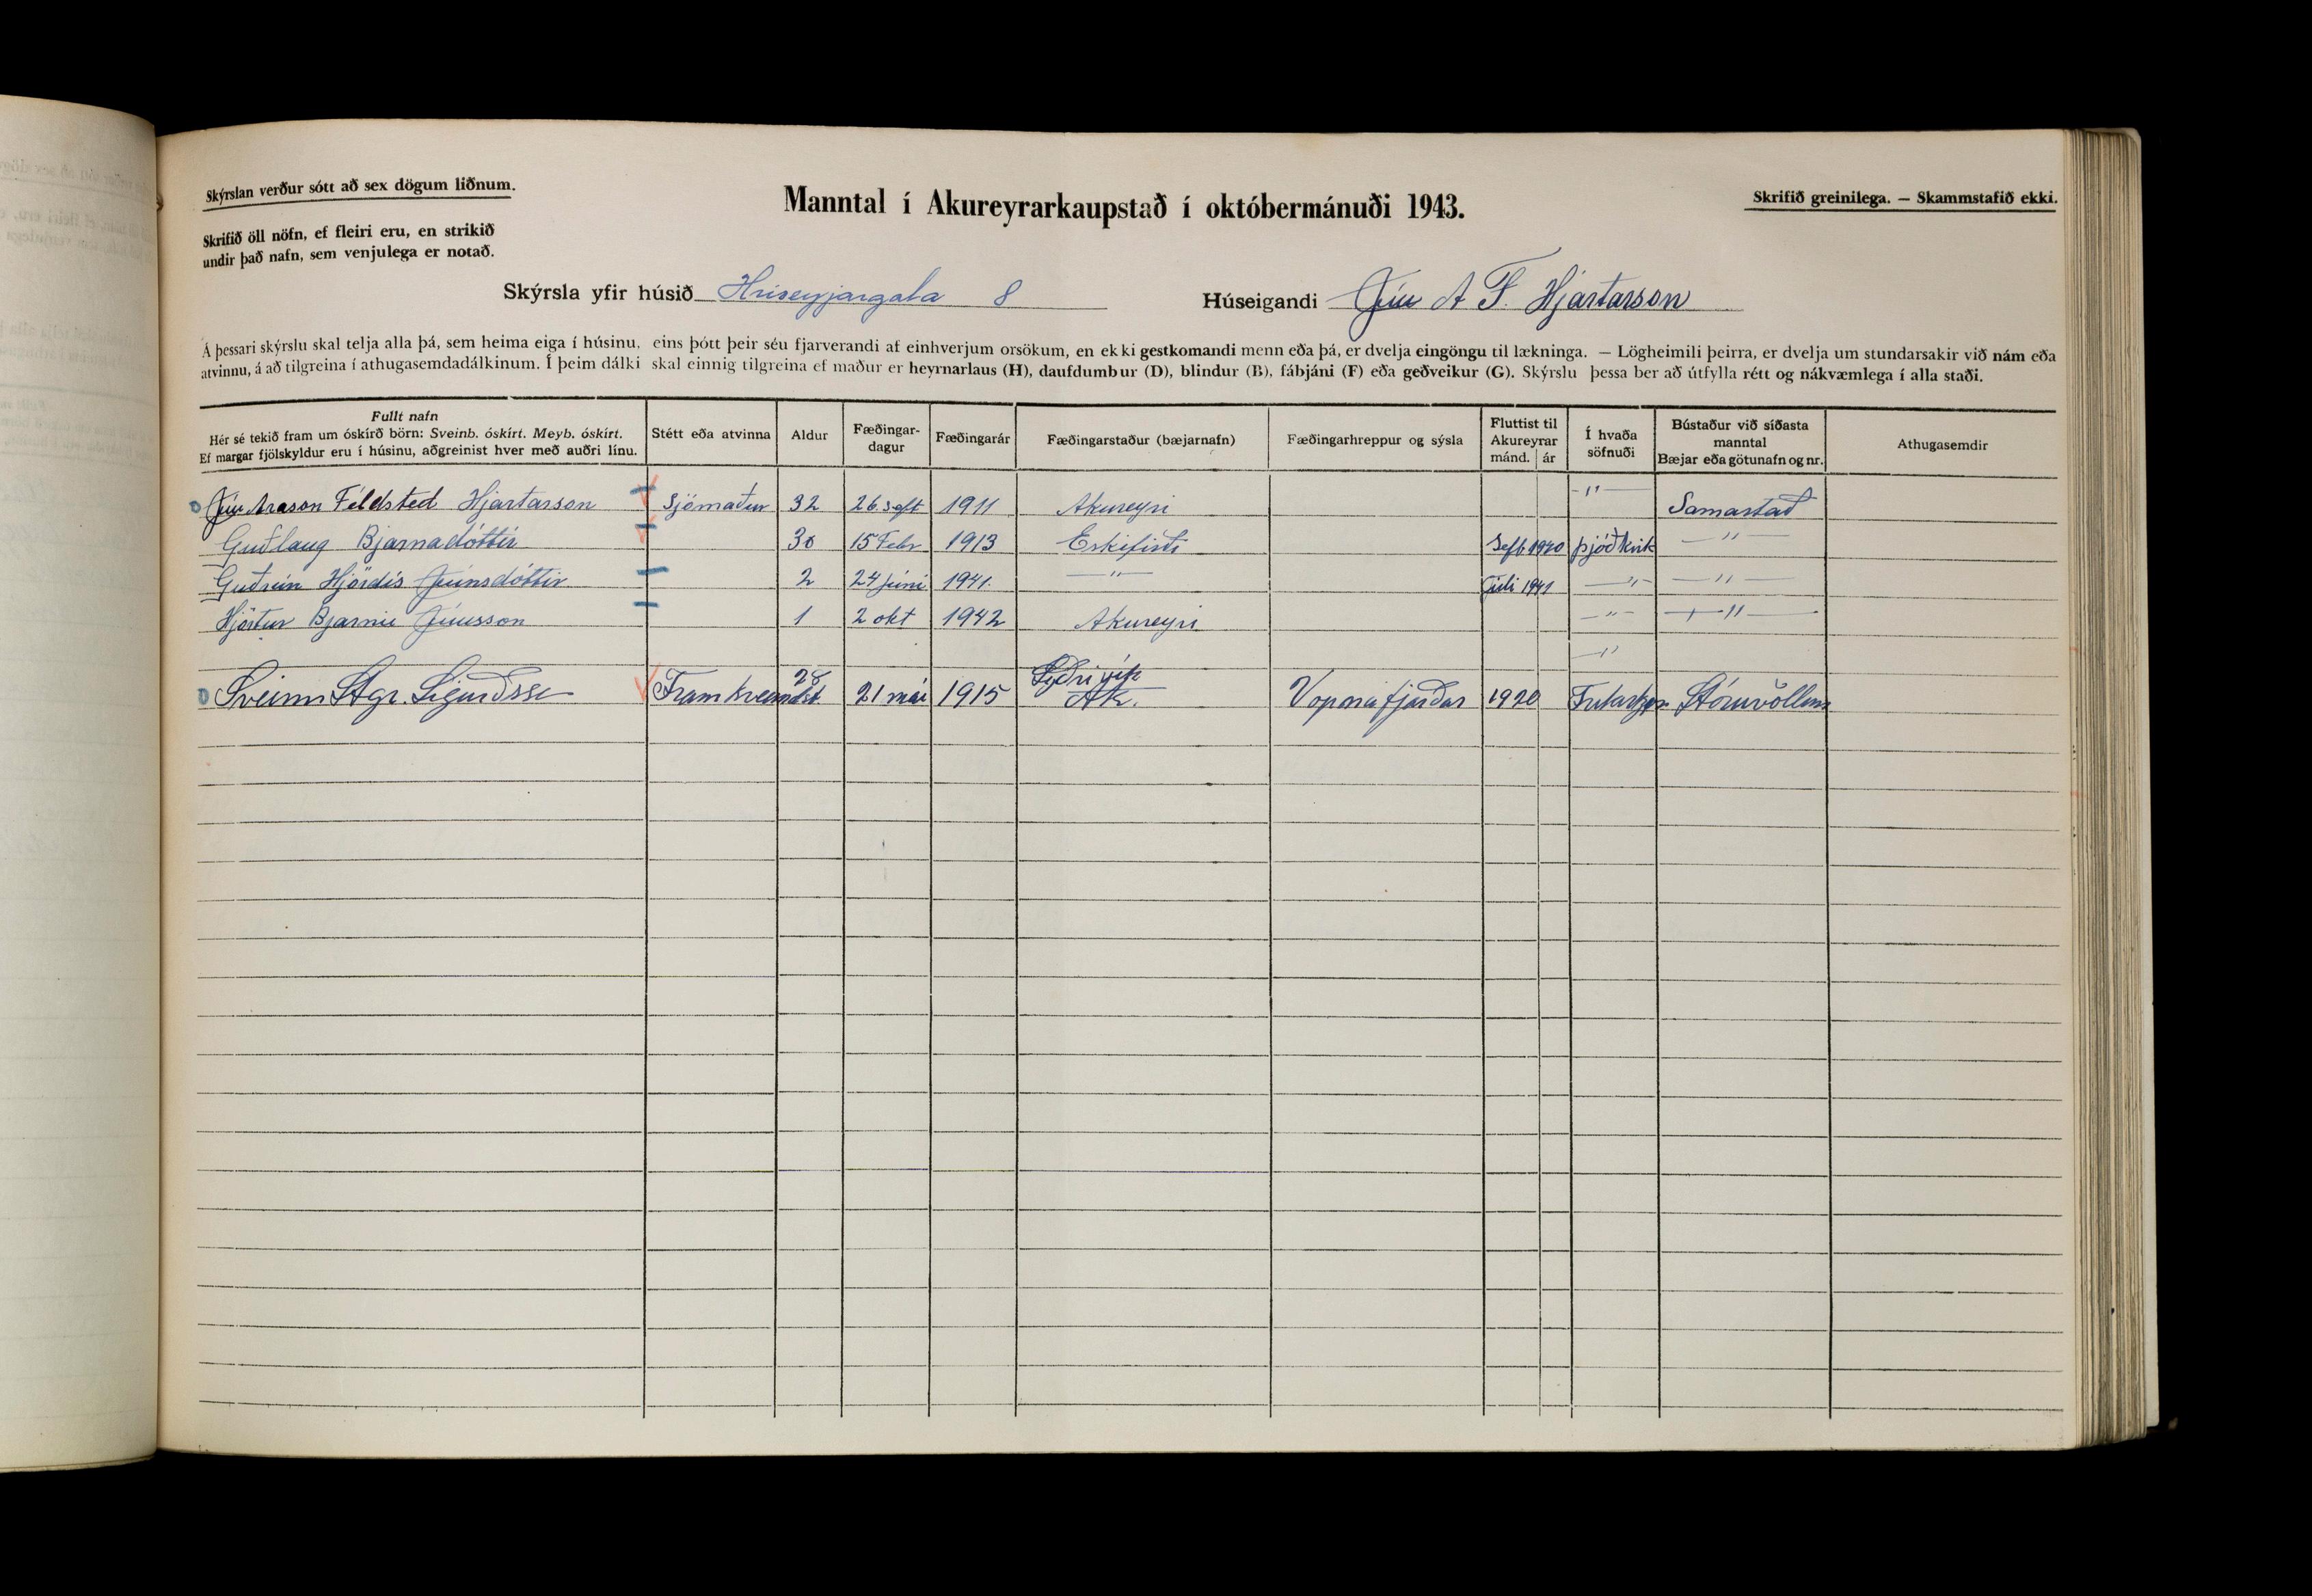 Skýrslan verður sótt að sex dögum liðnum.
Skrifið öll nöfn, ef fleiri eru, en strikið
undir það nafn, sem venjulega er notað.
Manntal í Akureyrarkaupstað í októbermánuði 1943.
Skrifið greinilega. — Skammstafið ekki.
Skýrsla yfir húsið Hríseyjargata 8 Húseigandi Jón A F. Hjartarson
Á þessari skýrslu skal telja alla þá, sem heima eiga í húsinu, eins þótt þeir séu fjarverandi af einhverjum orsökum, en ekki gestkomandi menn eða þá, er dvelja eingöngu til lækninga. — Lögheimili þeirra, er dvelja um stundarsakir við nám eða
atvinnu, á að tilgreina í athugasemdadálkinum. Í þeim dálki skal einnig tilgreina ef maður er heyrnarlaus (H), daufdumbur (D), blindur (B), fábjáni (F) eða geðveikur (G). Skýrslu þessa ber að útfylla rétt og nákvæmlega í alla staði.
Fullt nafn
Hér sé tekið fram um óskírð börn: Sveinb. óskírt. Meyb. óskírt.
Ef margar fjölskyldur eru í húsinu, aðgreinist hver með auðri línu.
Stétt eða atvinna
Aldur
Fæðingar-
dagur
Fæðingarár
Fæðingarstaður (bæjarnafn)
Fæðingarhreppur og sýsla
Fluttist til
Akureyrar
mánd. ár
Í hvaða
söfnuði
Bústaður við síðasta
manntal
Bæjar eða götunafn og nr.
Athugasemdir
Jón Arason Féldsted Hjartarson Sjómaður 32 26. sept 1911 Akureyri -"- Samastað
Guðlaug Bjarnadóttir 30 15 Febr 1913 Eskifirði Sept 1940 Þjóðkirk -"-
Guðrún Hjördís Jónsdóttir 2 24 júní 1941. -"- Júlí 1941 -"- -"-
Hjörtur Bjarni Jónsson 1 2 okt 1942 Akureyri -"- -"-
-"-
Sveinn Stgr. Sigurðsson 28 21 mai 1915 Ak. Vopnafjarðar 1920 Stóruvöllum